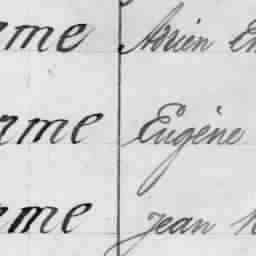 rme Adrien Em
rme Eugène
rme Jean